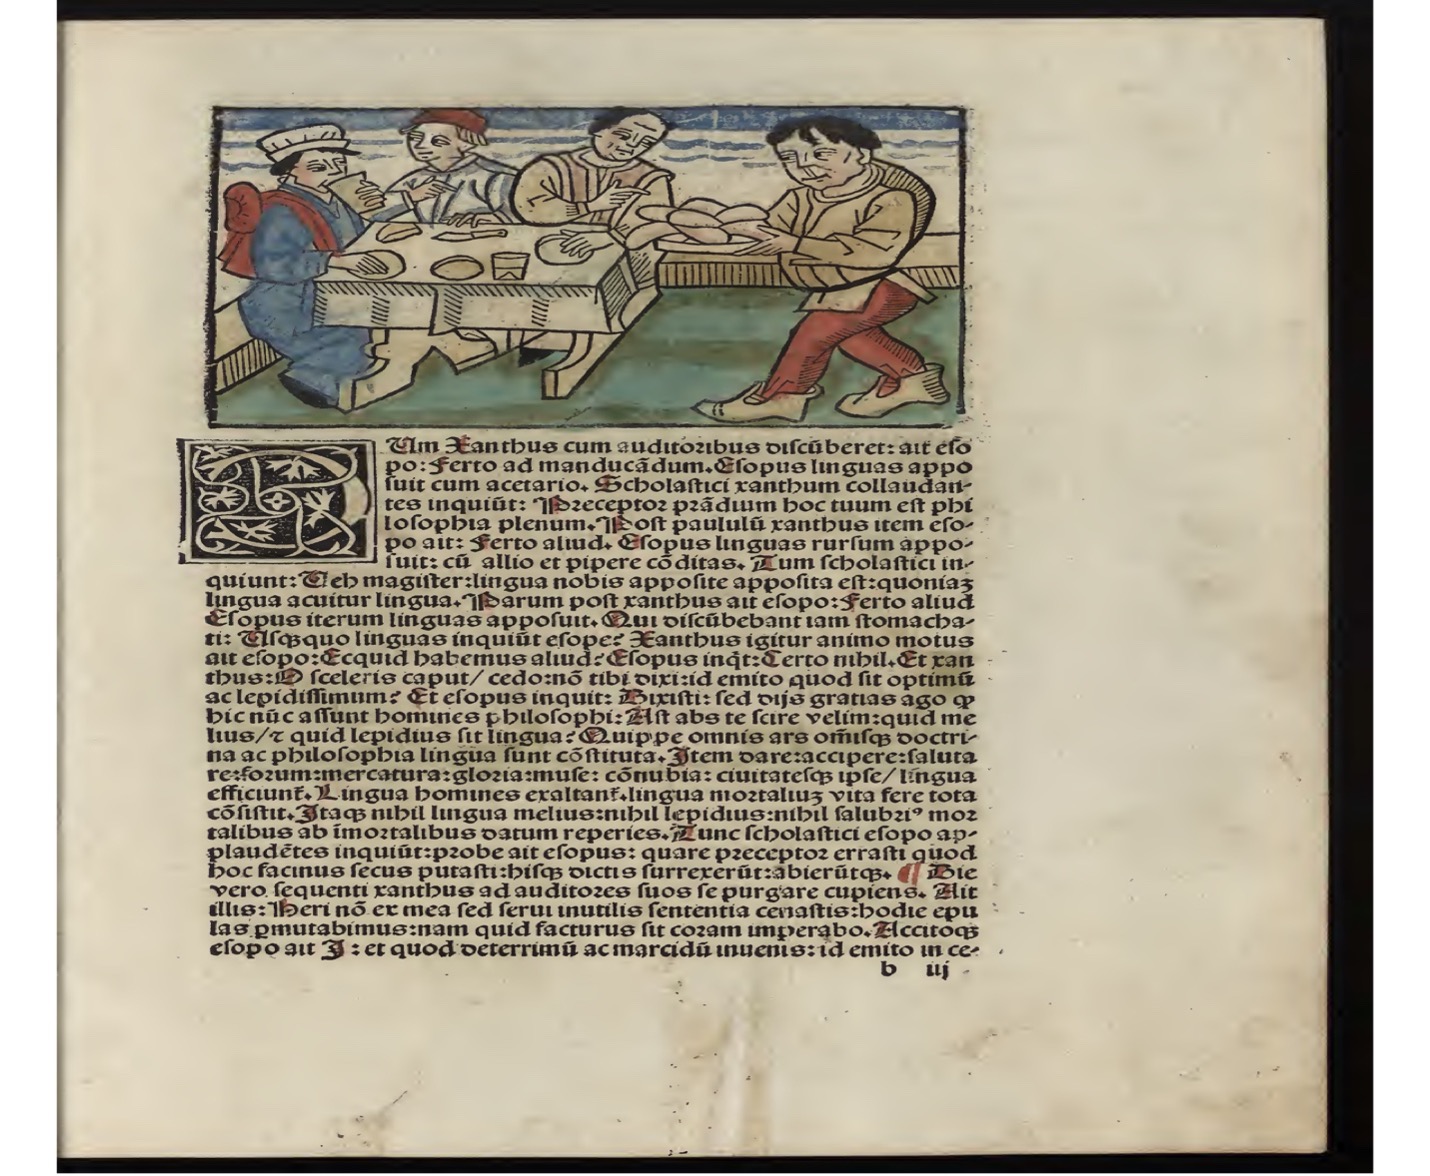 DUm Xanthus cum auditoribus discūberet: ait eso
po: Ferto ad manducādum. Esopus linguas appo
suit cum acetario. Scholastici xanthum collaudan-
tes inquiūt: Preceptor prādium hoc tuum est phi
losophia plenum. Post paululū xanthus item eso-
po ait: Ferto aliud. Esopus linguas rursum appo-
suit: cū allio et pipere cōditas. Tum scholastici in-
quiunt: Veh magister: lingua nobis apposite apposita est: quoniaꝫ
lingua acuitur lingua. Parum post xanthus ait esopo: Ferto aliud
Esopus iterum linguas apposuit. Qui discūbebant iam stomacha-
ti: Usqꝫquo linguas inquiūt esope? Xanthus igitur animo motus
ait esopo: Ecquid habemus aliud? Esopus inq̄t: Certo nihil. Et xan
thus: O sceleris caput/ cedo: nō tibi dixi: id emito quod sit optimū
ac lepidissimum? Et esopus inquit: Dixisti: sed dijs gratias ago ꝙ
hic nūc assunt homines philosophi: Ast abs te scire velim: quid me
lius/ ⁊ quid lepidius sit lingua? Quippe omnis ars om̄isqꝫ doctri-
na ac philosophia lingua sunt cōstituta. Item dare: accipere: saluta
re: forum: mercatura: gloria: muse: cōnubia: ciuitatesqꝫ ipse/ lingua
efficiunt᷑. Lingua homines exaltant᷑. lingua mortaliuꝫ vita fere tota
cōsistit. Itaqꝫ nihil lingua melius: nihil lepidius: nihil salubriꝰ mor
talibus ab īmortalibus datum reperies. Tunc scholastici esopo ap-
plaudētes inquiūt: probe ait esopus: quare preceptor errasti quod
hoc facinus secus putasti: hisqꝫ dictis surrexerūt: abierūtqꝫ. ¶ Die
vero sequenti xanthus ad auditores suos se purgare cupiens. Ait
illis: Heri nō ex mea sed serui inutilis sententia cenastis: hodie epu
las ꝑmutabimus: nam quid facturus sit coram imperabo. Accitoqꝫ
esopo ait I: et quod deterrimū ac marcidū inuenis: id emito in ce-
b iij